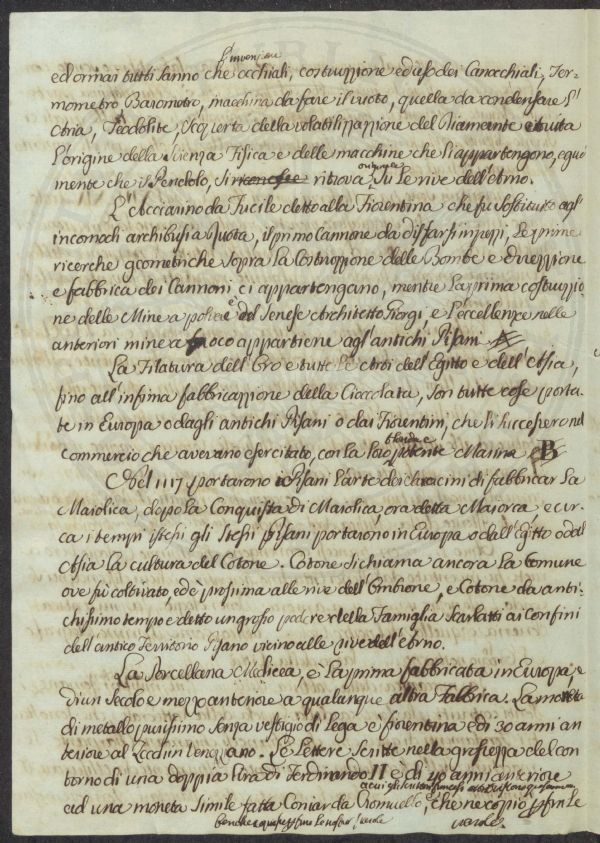 l'invenzione
ed ormai tutti sanno che occhiali, costruzione ed uso dei Canocchiali, Ter-
mometro Barometro, macchina da fare il vuoto, quella da condensare l'
Aria, Teodolite, Scoperta della volatilizzazione del Diamante e tutta
l'origine della Scienza Fisica e delle macchine che li appartengono, egual
mente che il Pendolo, si riconosce ritrova originale su le rive dell'Arno.
L'Acciarino da Fucile detto alla Fiorentina che fu sostituto agl'
incomodi archibusi a Ruota, il primo Cannone da disfarsi in pezzi, le prime
ricerche geometriche sopra la Costruzione delle Bombe e direzzione
e fabbrica dei Cannoni ci appartengano, mentre la prima costruzzio
ne delle Mine a polvere è del Senese Architetto Giorgi, e l'eccellenza nelle
anteriori mine a fuoco appartiene agl'antichi Pisani A
La Filatura dell'Oro e tutte le Arti dell'Egitto e dell'Asia,
fino all'infima fabbricazzione della Cioccolata, son tutte cose porta-
te in Europa o dagli antichi Pisani o dai Fiorentini, che li successero nel
commercio che avevano esercitato, con la loro potente Marina B
Nel 1117 portarono i Pisani l'arte dei Saracini di fabbricar la
Maiolica, dopo la Conquista di Maiolica, ora detta Majorca, e cir-
ca i tempi istessi gli stessi Pisani portarono in Europa o dall'Egitto o dal
Asia la cultura del Cotone. Cotone si chiama ancora la Comune
ove fù coltivato, ed è prossima alle rive dell'Ombrone, e Cotone da anti-
chissimo tempo è detto un grosso podere della Famiglia Scarlatti ai confini
dell'antico Territorio Pisano vicino alle rive dell'Arno.
La Porcellana Medicea, è la prima fabbricata in Europa, e
di un Secolo e mezzo anteriore a qualunque altra Fabbrica. La moneta
di metallo purissimo senza vestigio di Lega è fiorentina e di 30 anni an
teriore al Zecchin Veneziano. Le Lettere scritte nella grossezza del con
torno di una doppia lira di Ferdinando II è di 40 anni anteriore
ad una moneta simile fatta Coniar da Cromuello, che ne copiò perfin le
parole.